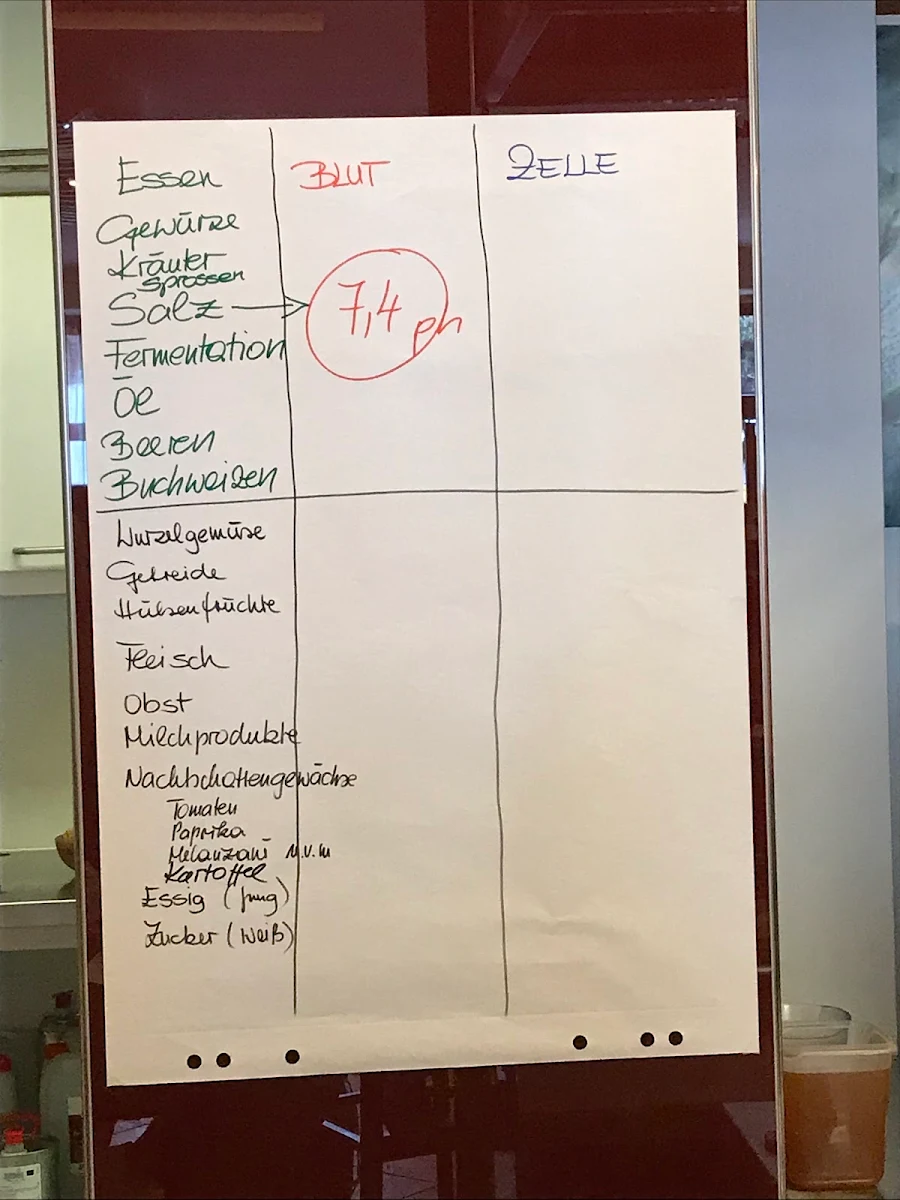 Essen
BLUT
ZELLE
Gewürze
Kräuter
sprossen
Salz
7,4 ph
Fermentation
Öl
Beeren
Buchweizen
Wurzelgemüse
Getreide
Hülsenfrüchte
Fleisch
Obst
Milchprodukte
Nachtschattengewächse
Tomaten
Paprika
Melanzani u.v.m
Kartoffel
Essig (jung)
Zucker (weiß)